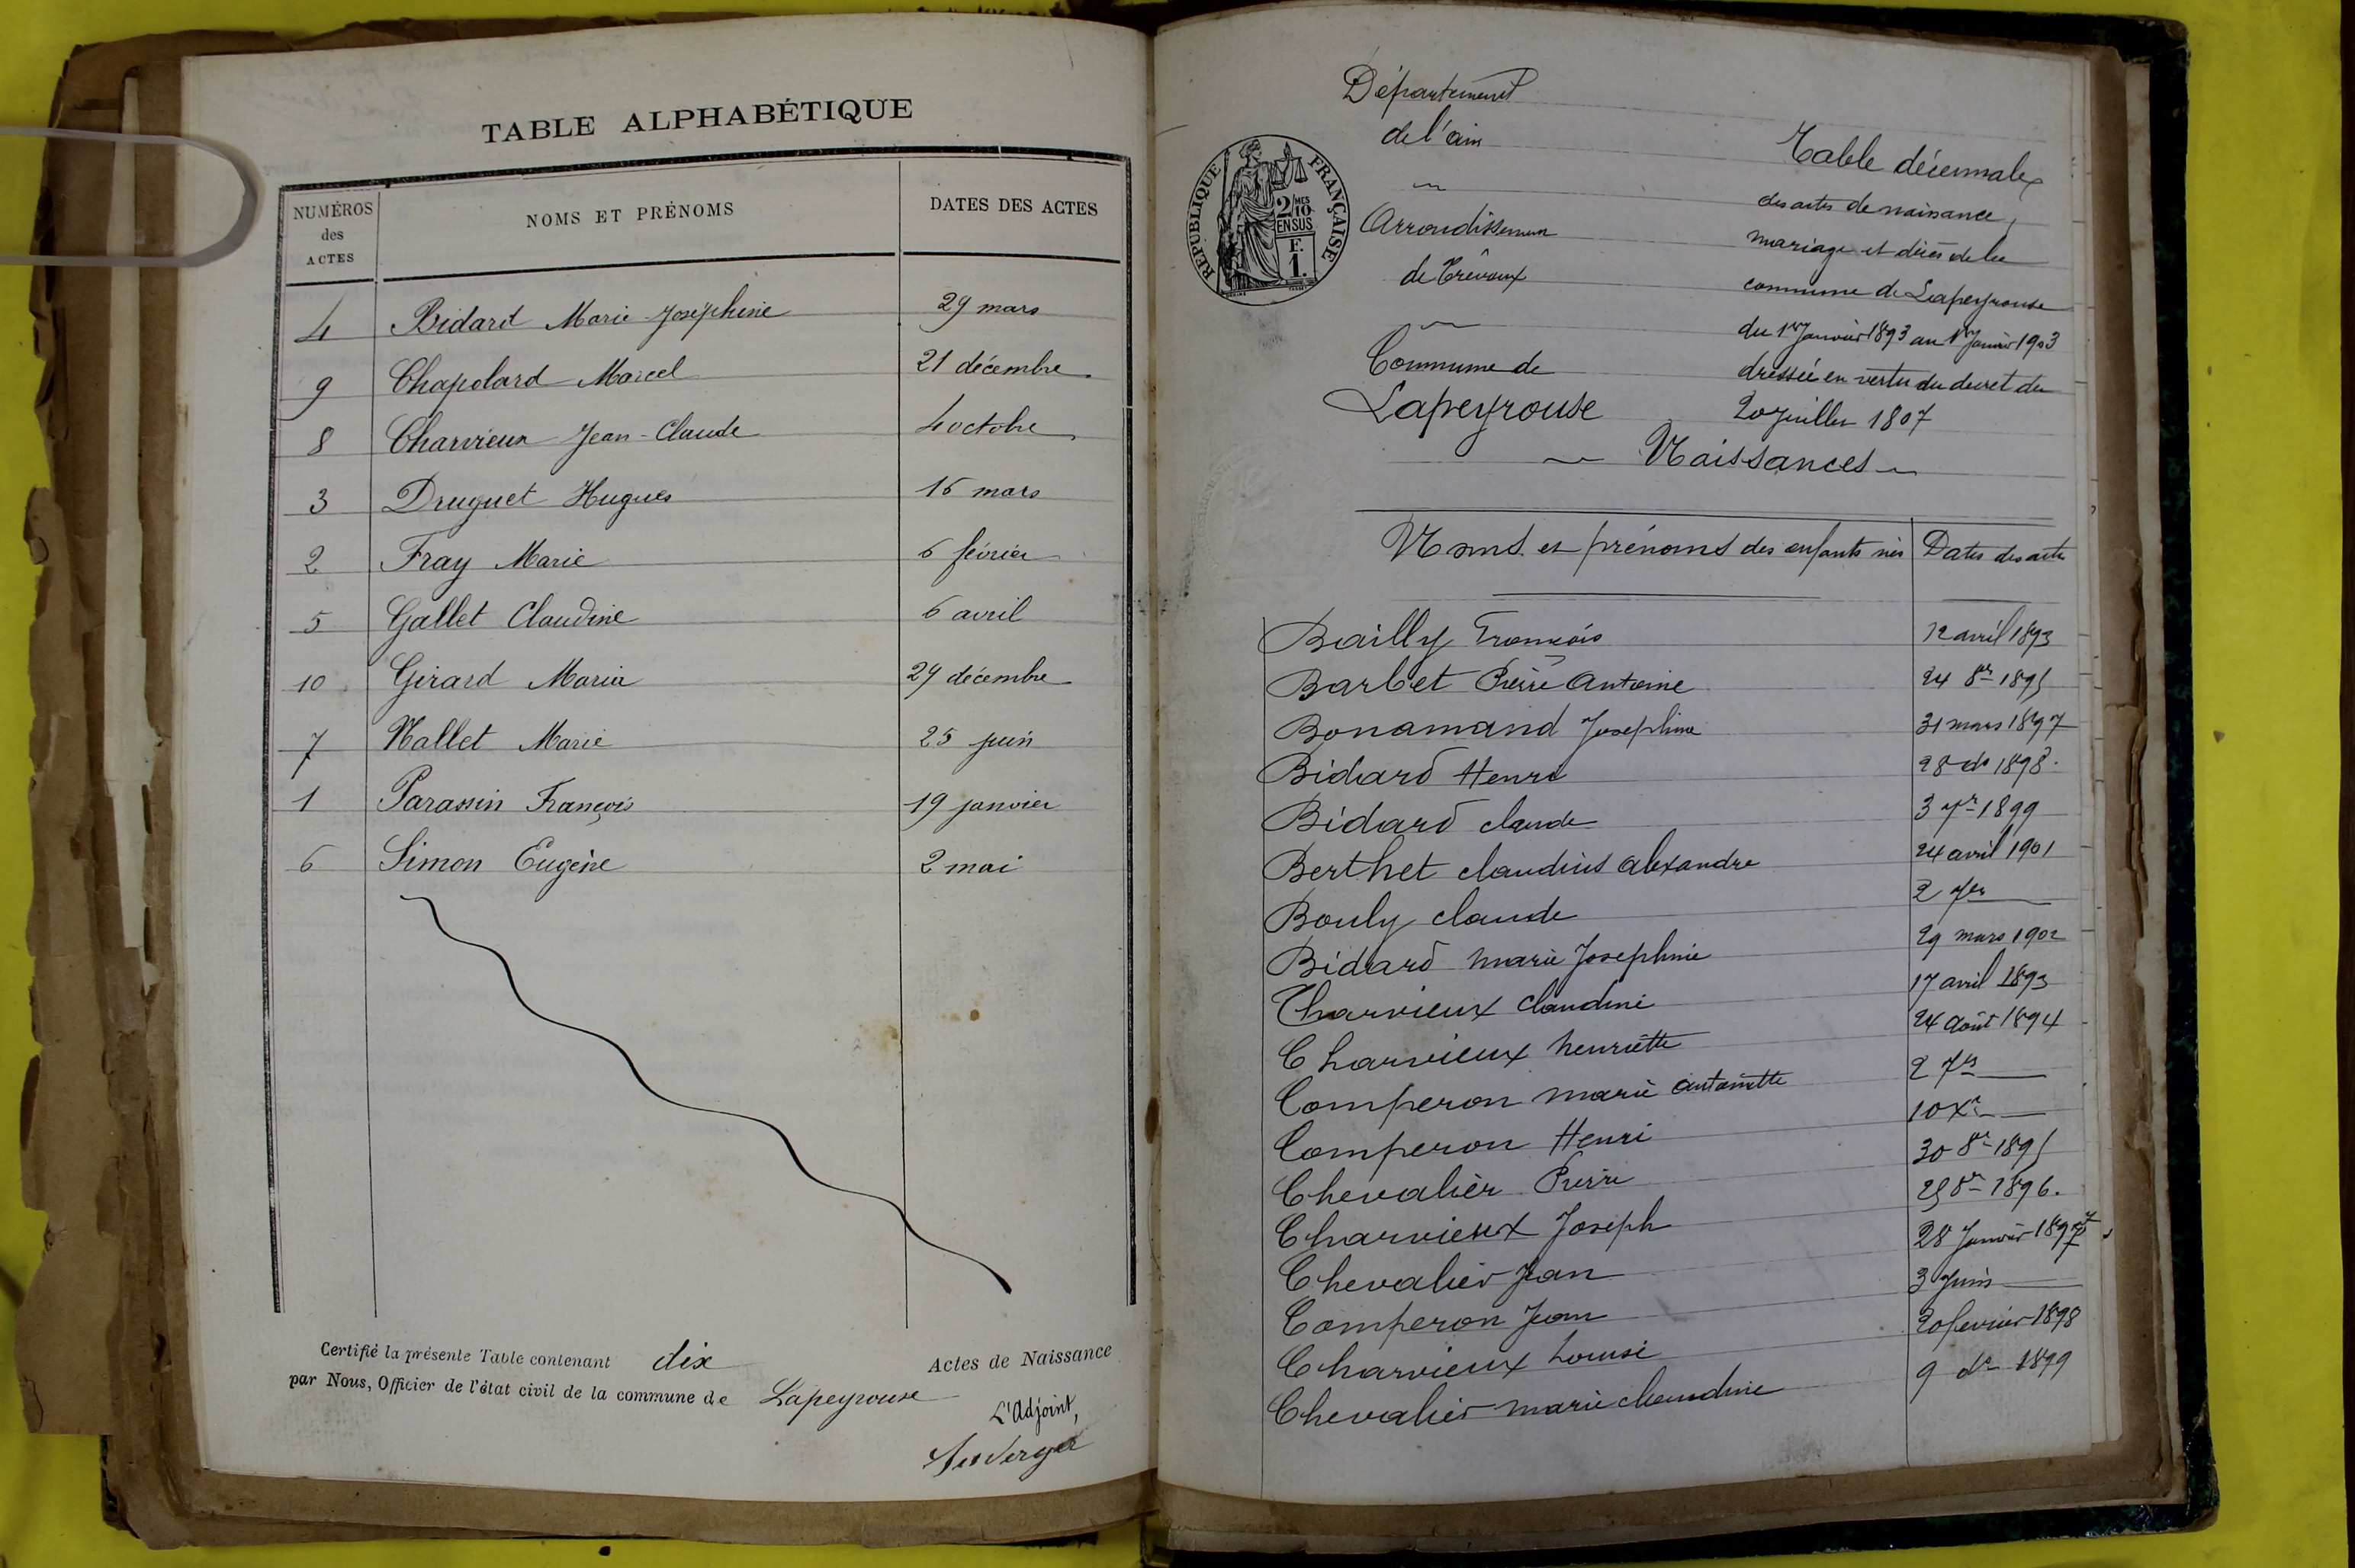 TABLE ALPHABÉTIQUE
NUMÉROS des ACTES NOMS ET PRÉNOMS DATES DES ACTES
4 Bidard Marie Joséphine 29 mars
9 Chapolard Marcel 21 décembre
8 Charvieux Jean-Claude 4 octobre
3 Druguet Hugues 15 mars
2 Fray Marie 6 février
5 Gallet Claudine 6 avril
10 Girard Maria 29 décembre
7 Nallet Marie 25 juin
1 Parassin François 19 janvier
6 Simon Eugène 2 mai
Certifié la présente Table contenant dix Actes de Naissance
par Nous, Officier de l'état civil de la commune de Lapeyrouse
L'Adjoint,
Département
de l'ain
Arrondissement
de Trévoux
Commune de
Lapeyrouse
RÉPUBLIQUE FRANÇAISE
2/10 MES
EN SUS
F.
1.
Table décennale
des actes de naissance,
mariage et décès de la
commune de Lapeyrouse
du 1er Janvier 1893 au 1er Janvier 1903
dressée en vertu du decret du
20 juillet 1807
Naissances
Noms et prénoms des enfants nés Dates des actes
Bailly François 12 avril 1893
Barbet Pierre Antoine 24 8re 1895
Bonamand Josephine 31 mars 1897
Bidard Henri 28 do 1898
Bidard claude 3 7re 1899
Berthet claudius alexandre 24 avril 1901
Bouly claude 2 7re
Bidard marie Josephine 29 mars 1902
Charvieux Claudine 17 avril 1893
Charvieux henriette 24 Août 1894
Comperon marie antoinette 2 7re
Comperon Henri 10 Xre
Chevalier Pierre 30 8re 1895
Charvieux Joseph 25 8re 1896.
Chevalier Jean 28 Janvier 1897
Comperon Jean 3 Juin
Charvieux Louise 20 fevrier 1898
Chevalier marie claudine 9 do 1899